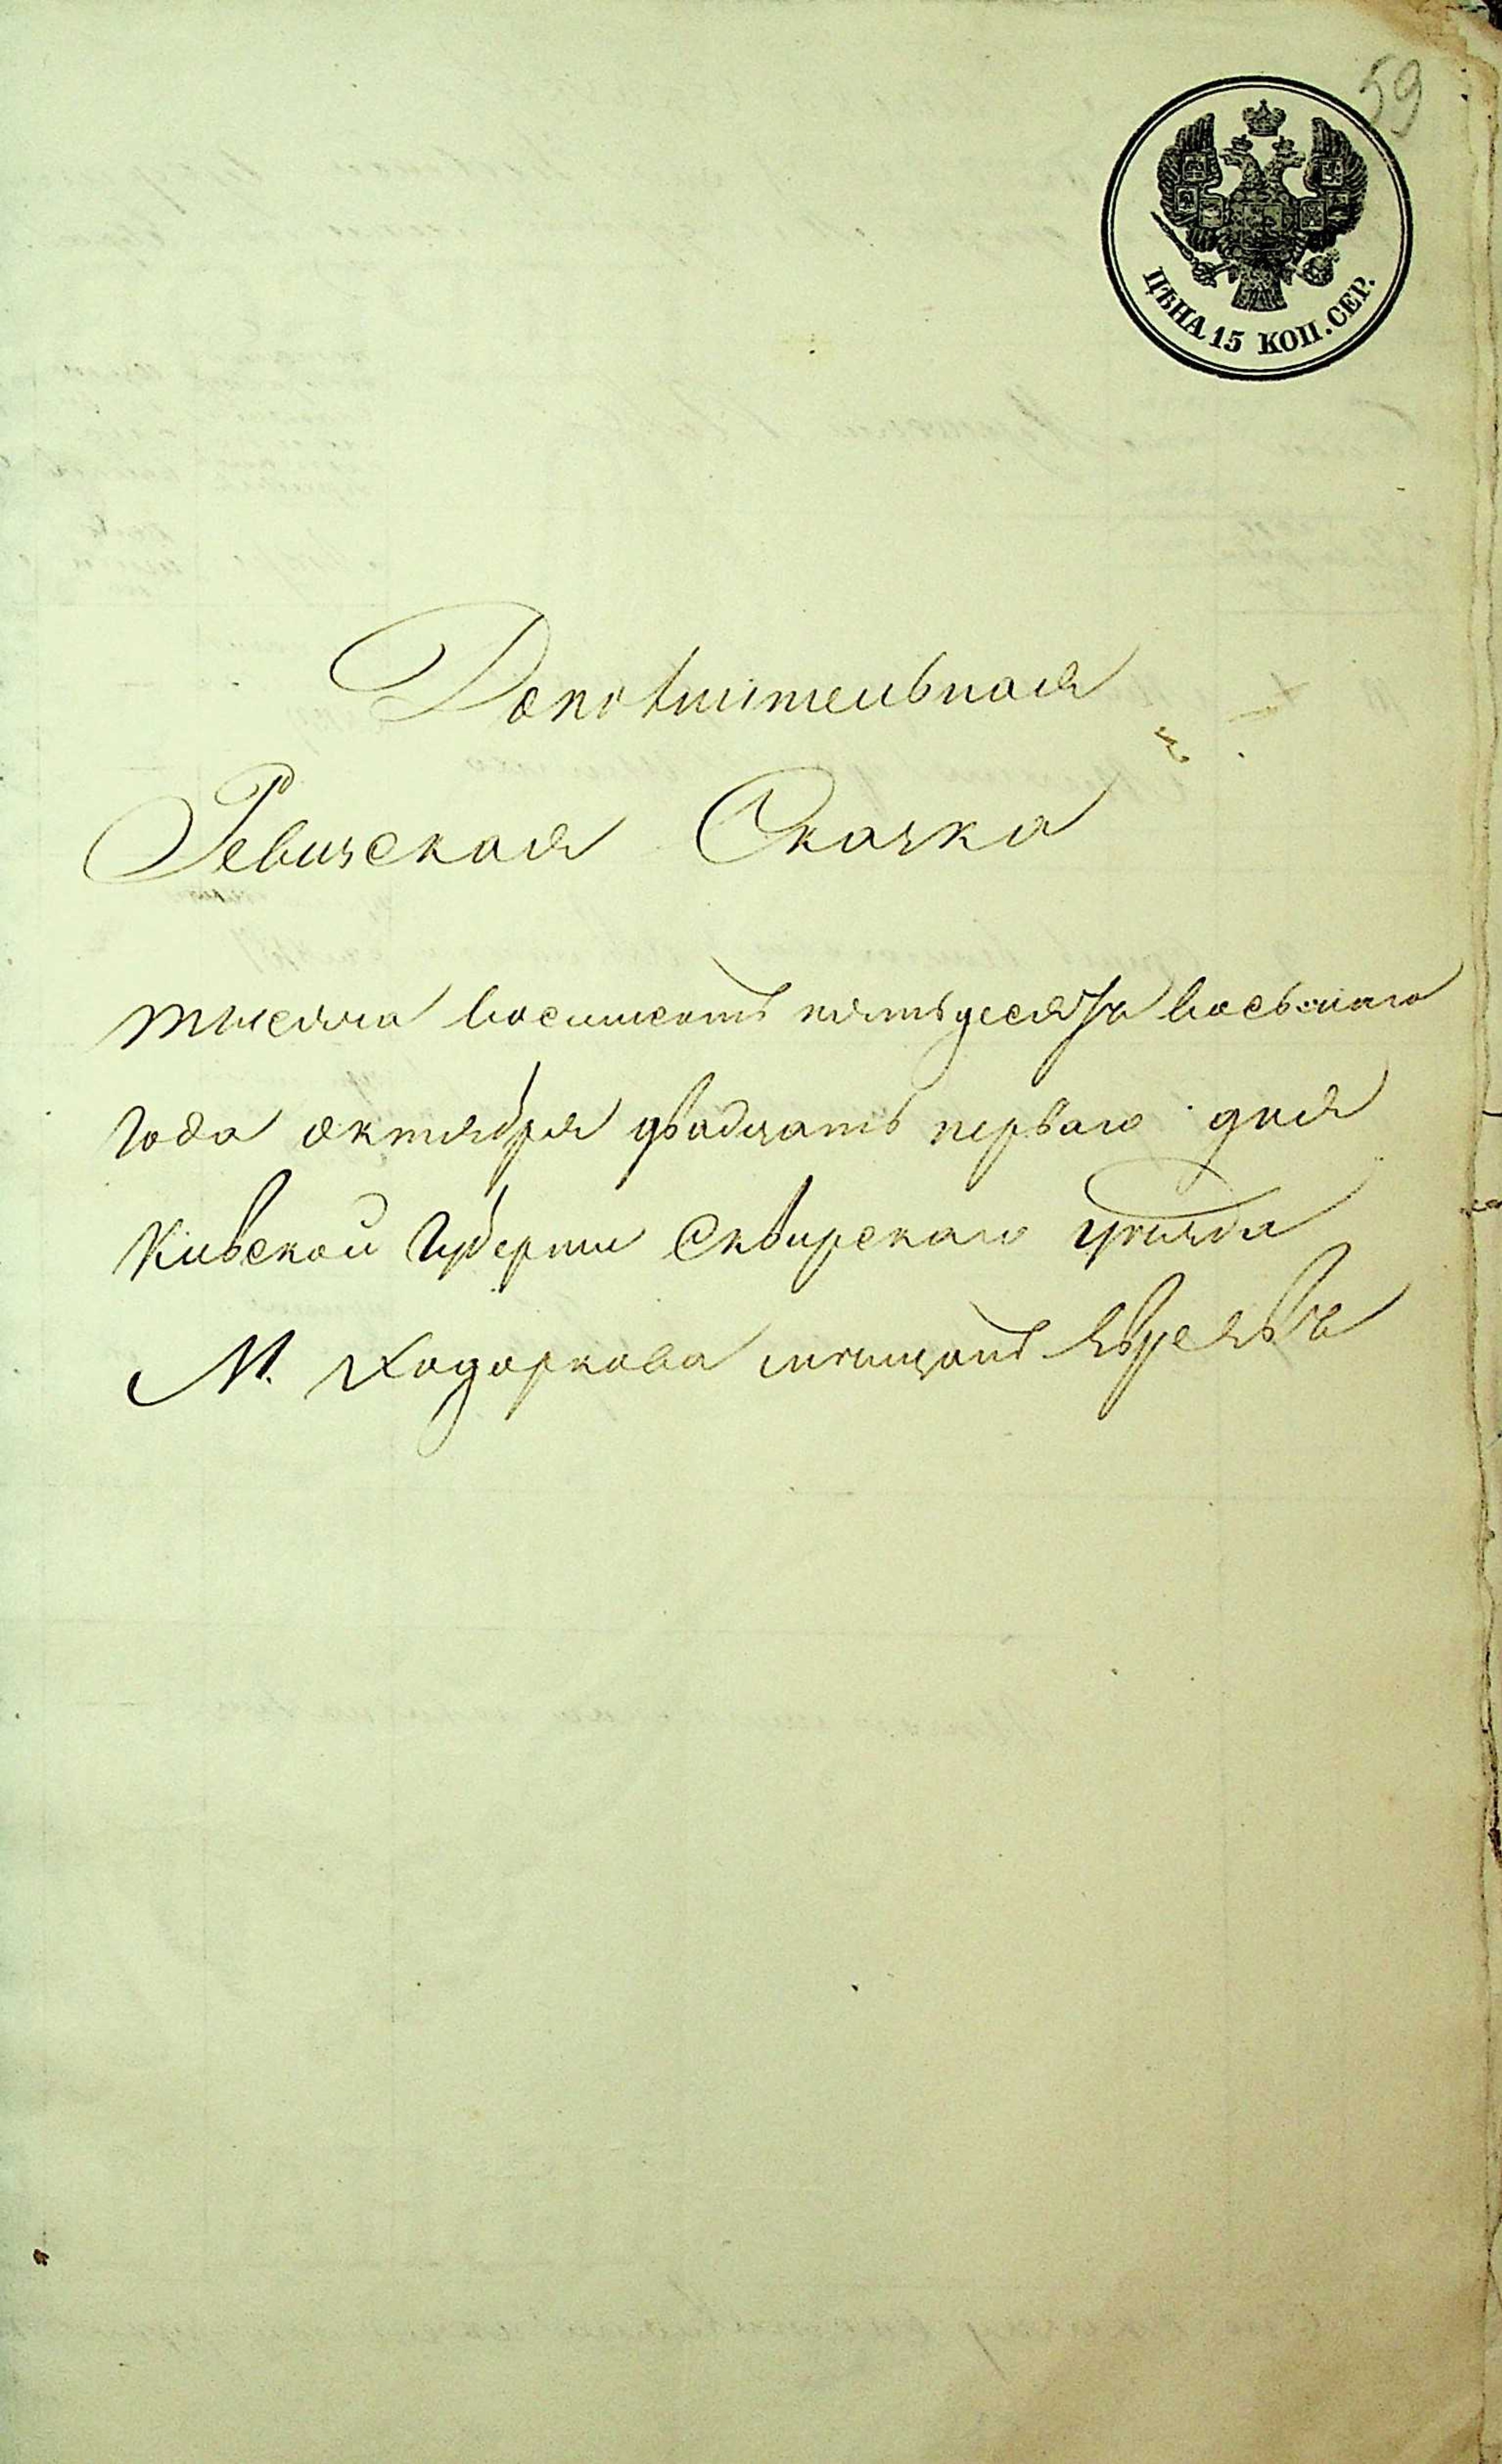 59
ЦѢНА 15 КОП. СЕР.
Дополнительная
Ревизская Сказка
тысяча восимсотъ пятьдесятъ восьмаго
года октября двадцать перваго дня
Кивской Губерни Сквирскаго уѣизда
М. Ходоркова мѣщанъ Явреявъ